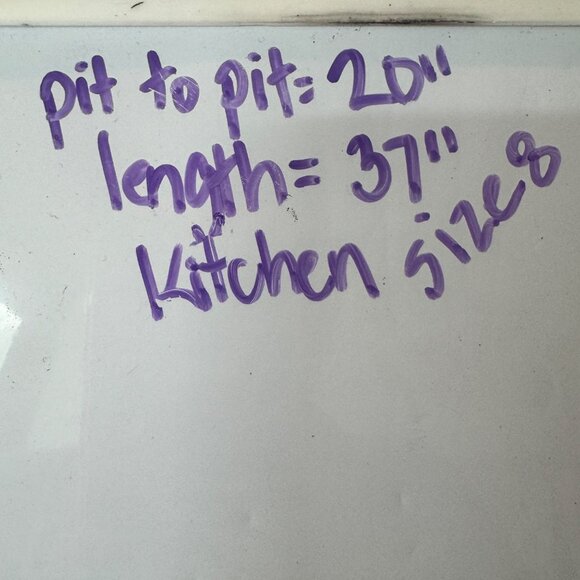 pit to pit= 20"
length= 37"
Kitchen size 8